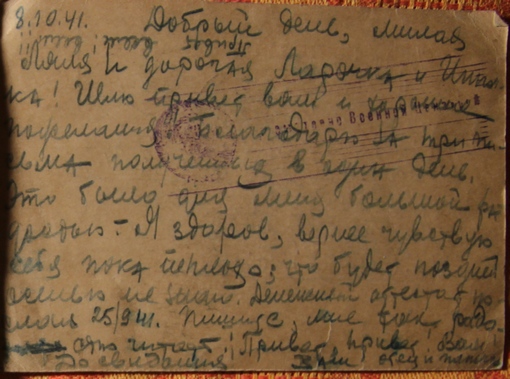 8.10.41. Добрый день, милая
Привет вам! вам!!!
Ляля и дорогая Ларочка и
ка! Шлю привет вам и хорошие
пожелания. Благодарю за три пи-
сьма полученных в один день.
Это было для меня большой ра-
достью. Я здоров, вернее чувствую
себя пока неплохо, что будет поздней
осенью не знаю. Денежный аттестат по-
слал 25/9 41. Пишите, мне так радо-
стно читать! Привет, привет вам!
До свидания Ваш отец и
Военной